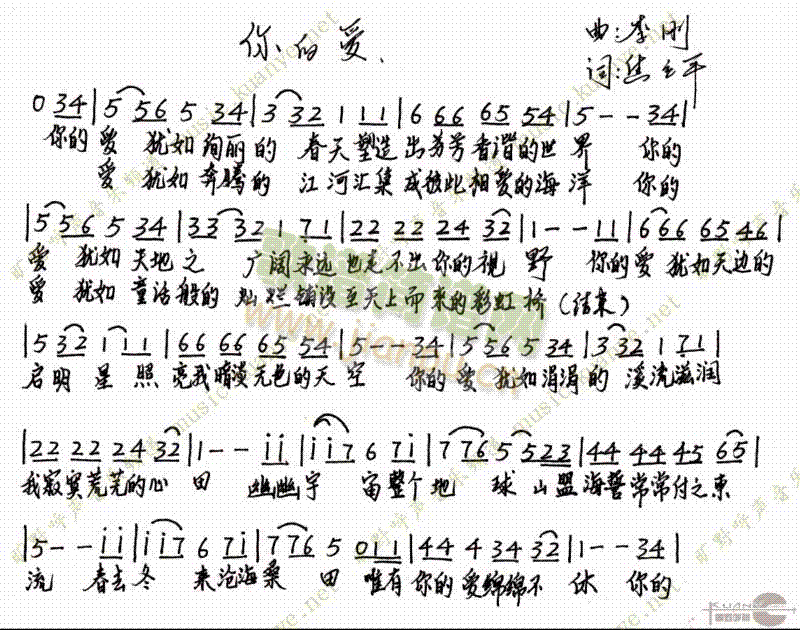 你的爱
曲:李刚
词:焦之平
0 34 | 5 56 5 34 | 3 32 1 11 | 6 66 65 54 | 5 - - 34 |
你的 爱 犹如 绚丽的 春天塑造出芬芳香谐的世界 你的
爱 犹如 奔腾的 江河汇集成彼此相爱的海洋 你的
| 5 56 5 34 | 33 32 1 71 | 22 22 24 32 | 1 - - 11 | 666 65 46 |
爱 犹如 天地之 广阔永远也走不出你的视野 你的爱犹如天边的
爱 犹如 童话般的 灿烂铺设至天上而来的彩虹桥 (结束)
| 5 32 1 11 | 66 66 65 54 | 5 - - 34 | 5 56 5 34 | 3 32 1 71 |
启明 星 照 亮我暗淡无色的天空 你的爱犹如涓涓的 溪流滋润
| 22 22 24 32 | 1 - - i i | i i 7 6 7 i | 7 76 5 523 | 44 44 45 65 |
我寂寞荒芜的心田 幽幽宇 宙整个地 球 山盟海誓常常付之东
| 5 - - i i | i i 7 6 7 i | 7 76 5 0 1 1 | 44 4 34 32 | 1 - - 34 |
流 春去冬 来沧海桑 田 唯有你的爱绵绵不休 你的
www.jianpu.cn
旷野呼声音乐 music.kuanye.net
KUAN